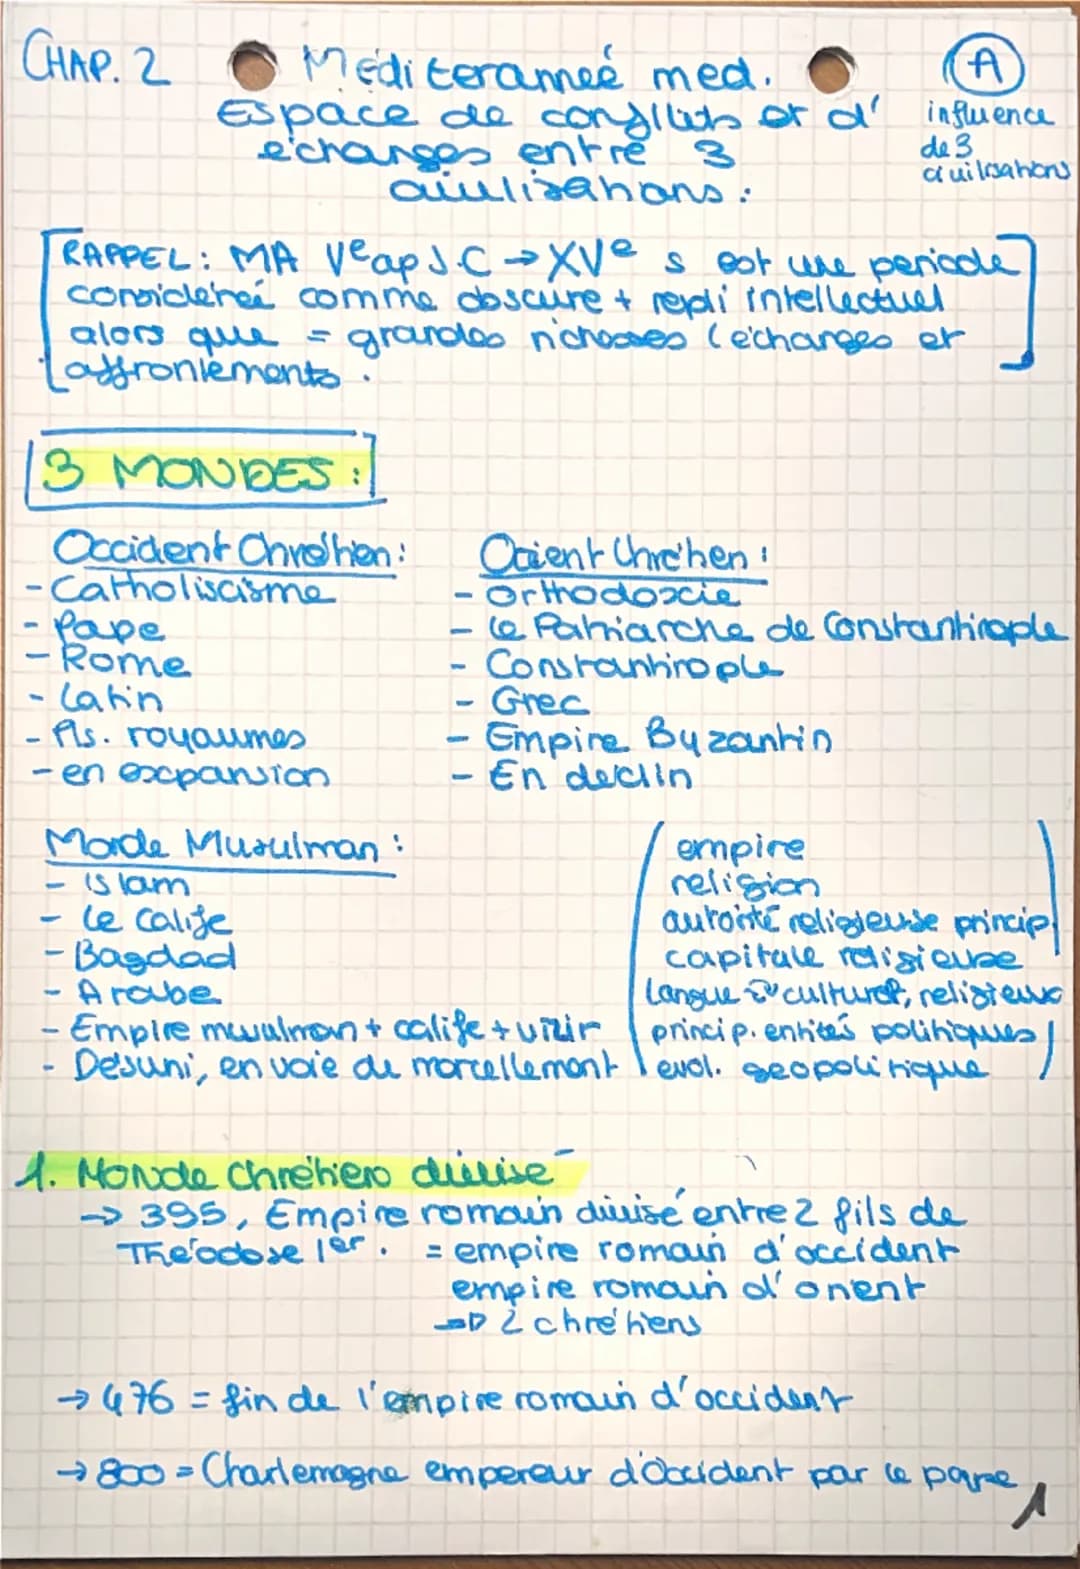 CHAP. 2
Méditerameé med.
Espace de conflits et d'
échanges entre 3
civilisations :
A
influence
de 3
civilisations
RAPPEL : MA Ve ap J.C → XVe s est une periode
considéreé comme obscure + repli intellectuel
alors que = grandes richesses (échanges et
affrontements .
3 MONDES :
Occident Chrétien :
- Catholiscisme
- Pape
- Rome
- Latin
- Pls. royaumes
- en expansion
Orient Chrétien :
- Orthodoxie
- le Patriarche de Constantinople
- Constantinople
- Grec
- Empire Byzantin
- En declin
Monde Musulman :
- Islam
- Le Calife
- Bagdad
- Arabe
- Empire musulman + calife + vizir
- Désuni, en voie de morcellement
empire
religion
autorité religieuse princip
capitale religieuse
langue culturel, religieux
princip. entités politiques
evol. géopolitique
1. Monde Chrétien divisé
→ 395, Empire romain divisé entre 2 fils de
Théodose 1er . = empire romain d'occident
empire romain d'orient
→ 2 chrétiens
→ 476 = fin de l'empire romain d'occident
→ 800 = Charlemagne empereur d'Occident par le pape
1